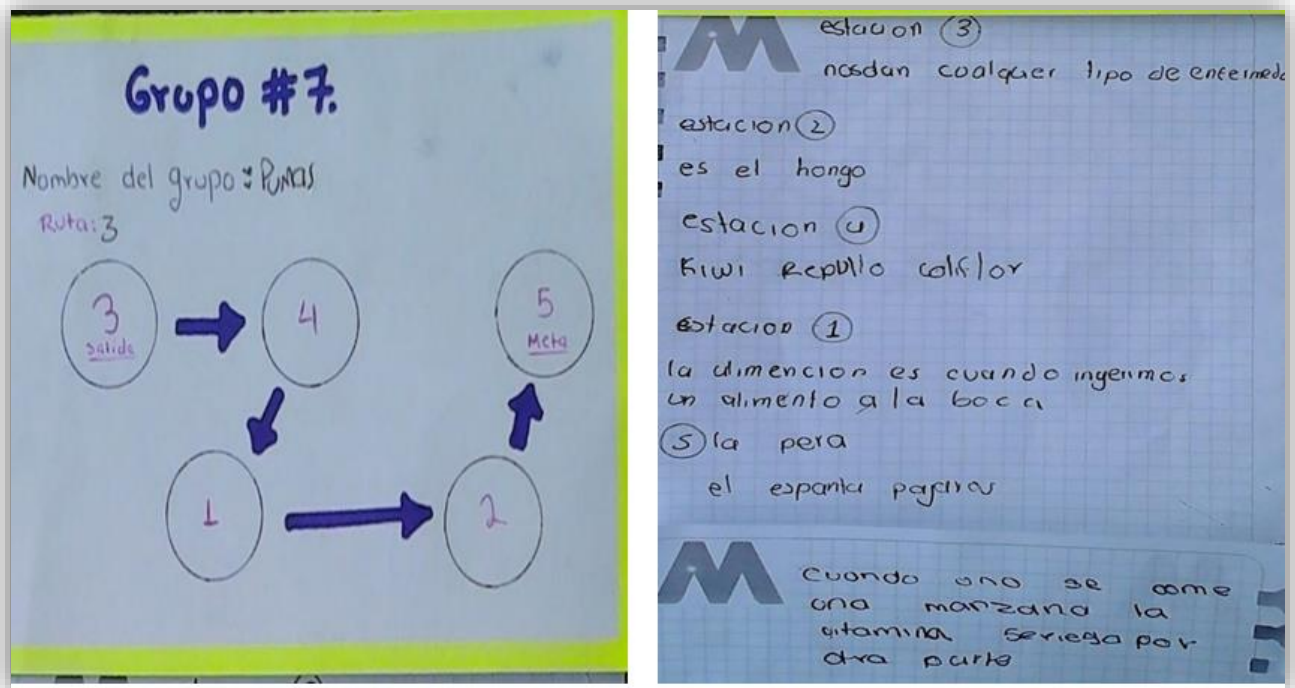 Grupo #7.
Nombre del grupo: Pumas
Ruta: 3
3
Salida
4
5
Meta
1
2
estacion 3
nosdan coalquer tipo de enfermeda
estacion 2
es el hongo
estacion 4
Kiwi Repollo coliflor
estacion 1
la alimencion es cuando ingerimos
un alimento a la boca
5 la pera
el espanta pajaros
M
M
cuando uno se come
una manzana la
vitamina seriega por
otra parte